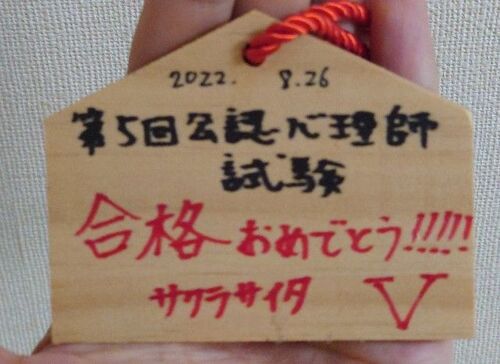 2022. 8.26
第5回公認心理師
試験
合格おめでとう!!!!!
サクラサイタ V